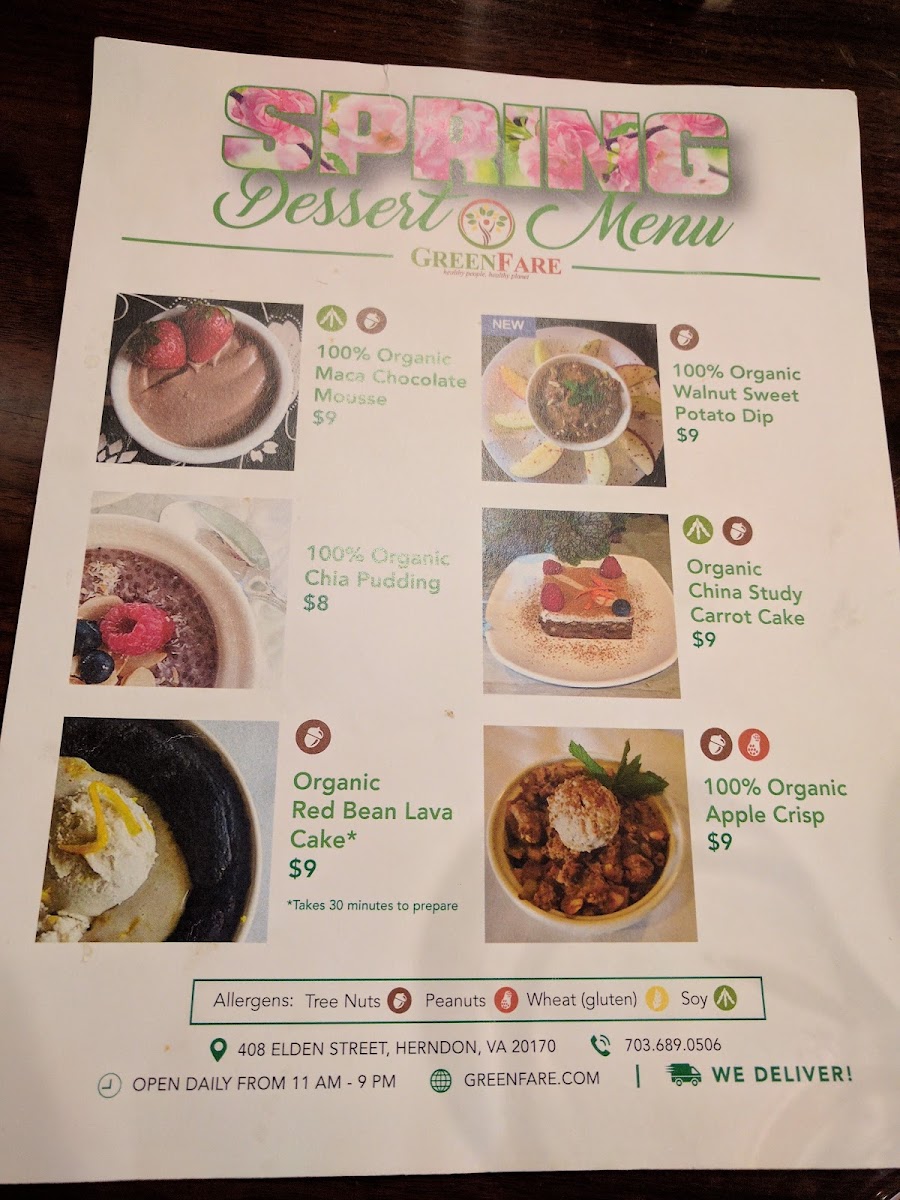 SPRING
Dessert Menu
GREENFARE
healthy people, healthy planet
100% Organic
Maca Chocolate
Mousse
$9
NEW
100% Organic
Walnut Sweet
Potato Dip
$9
100% Organic
Chia Pudding
$8
Organic
China Study
Carrot Cake
$9
Organic
Red Bean Lava
Cake*
$9
*Takes 30 minutes to prepare
100% Organic
Apple Crisp
$9
Allergens: Tree Nuts Peanuts Wheat (gluten) Soy
408 ELDEN STREET, HERNDON, VA 20170 703.689.0506
OPEN DAILY FROM 11 AM - 9 PM GREENFARE.COM | WE DELIVER!